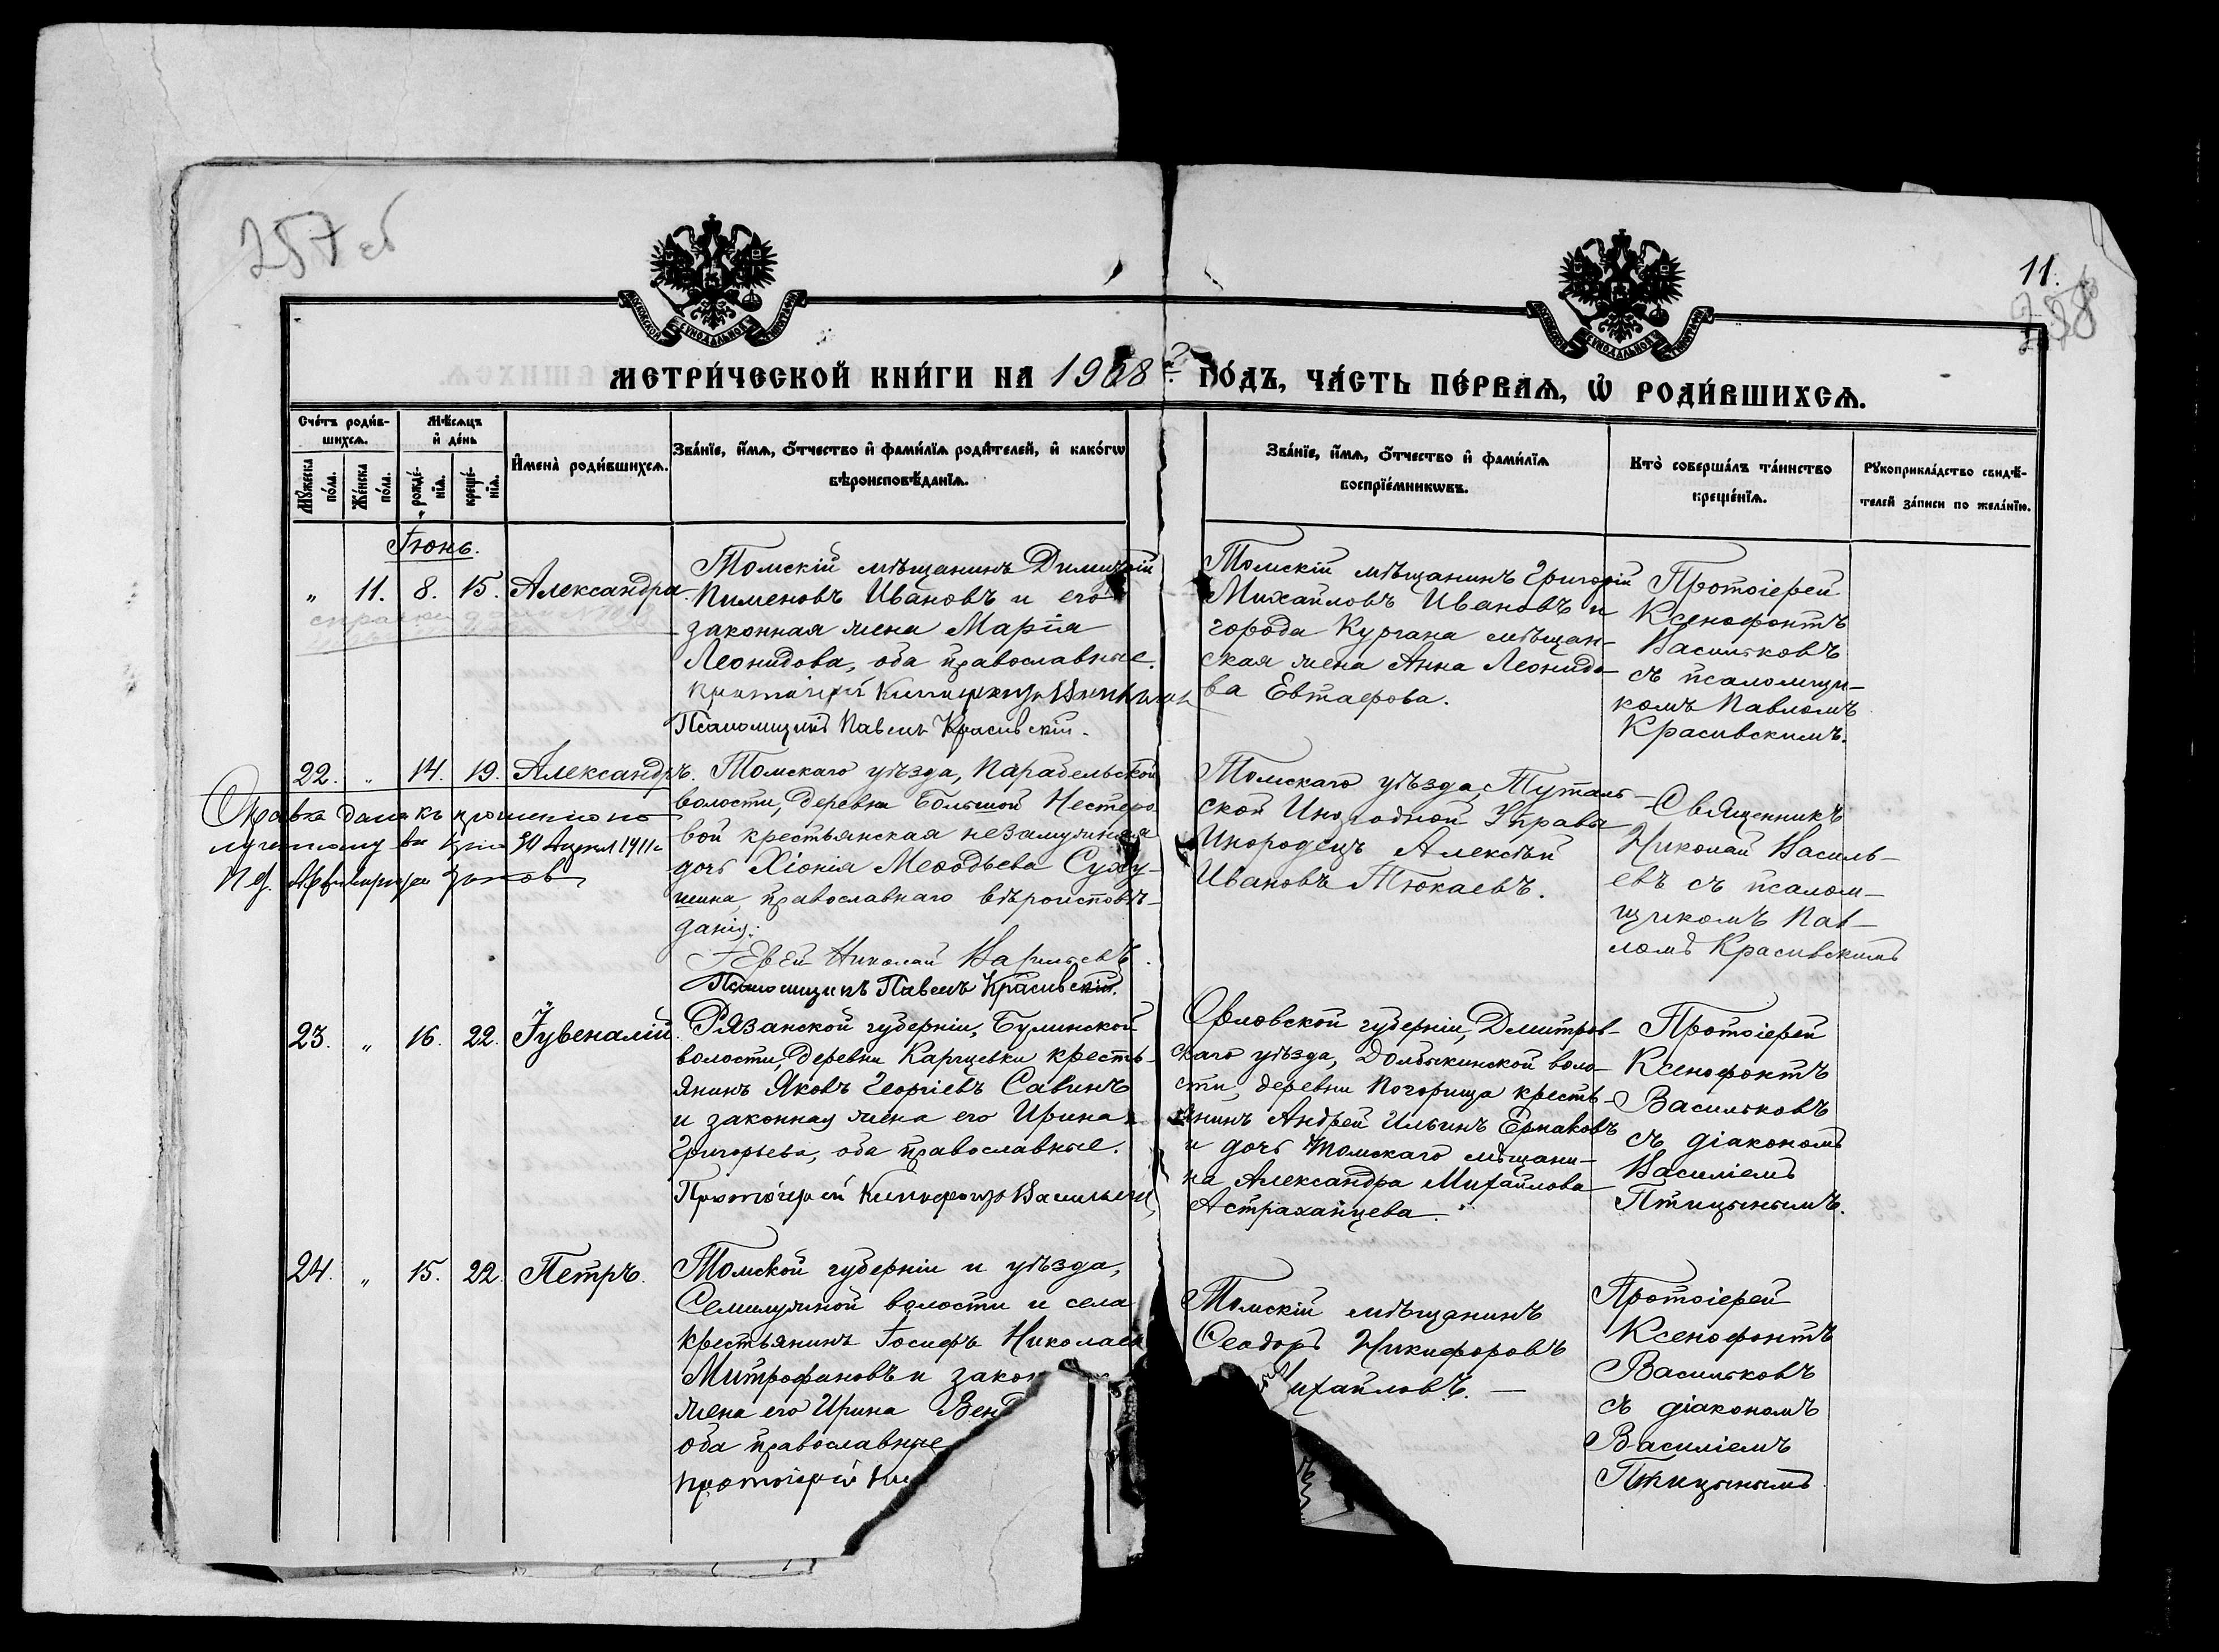 257 об
11.
258
МЕТРИ́ЧЕСКОЙ КНИ́ГИ НА 1908 г. ГО́ДЪ, ЧА́СТЬ ПЕ́РВАЯ, Ѽ РОДИ́ВШИХСЯ.
Сче́тъ роди́в-
шихся.
Му́жеска по́ла.
Же́нска по́ла.
Мѣ́сяцъ и де́нь
рожде́-
нїя.
креще́-
нїя.
Имена̀ роди́вшихся.
Зва́нїе, и́мя, о́тчество и фами́лїя роди́телей, и како́гѡ
вѣроисповѣ́данїя.
Зва́нїе, и́мя, о́тчество и фами́лїя
воспрїе́мникѡвъ.
Кто̀ соверша́лъ та́инство
креще́нїя.
Рукоприкла́дство свидѣ́-
телей за́писи по жела́нїю.
Іюнь.
" 11. 8. 15. Александра.
Томскій мѣщанинъ Димитрій
Пименовъ Ивановъ и его
законная жена Марія
Леонидова, оба православные.
Протоіерей Ксенофонтъ Васильков
Псаломщикъ Павелъ Красивскій.
Томскій мѣщанинъ Григорій
Михаиловъ Ивановъ и
города Кургана мѣщан-
ская жена Анна Леонидо-
ва Евтаефова.
Протоіерей
Ксенофонтъ
Васильковъ
съ псаломщи-
комъ Павломъ
Красивскимъ.
22. " 14. 19. Александръ.
Справка дана къ прошенію по
30 Апреля 1911 г.
Томскаго уѣзда, Парабельской
волости, деревни Большой Нестеро
вой крестьянская незамужняя
дочь Хіонія Меѳодьева Суху-
шина, православнаго вѣроисповѣ-
данія.
Іерей Николай Васильевъ.
Псаломщикъ Павелъ Красивскій.
Томскаго уѣзда, Туталь-
ской Инородной Управы
Инородецъ Алексѣй
Ивановъ Тюкаевъ.
Священникъ
Николай Василь-
евъ съ псалом-
щикомъ Пав-
ломъ Красивскимъ
23. " 16. 22. Іувеналій.
Рязанской губерніи, Булинской
волости, деревни Каргцевки кресть-
янинъ Яковъ Георгіевъ Савинъ
и законная жена его Ирина
Григорьева, оба православные.
Протоіерей Ксенофонтъ Васильков
Орловской губерніи, Дмитров-
скаго уѣзда, Долбыкинской воло-
сти, деревни Погорища кресть-
янинъ Андрей Ильинъ Ермаковъ
и дочь томскаго мѣщани-
на Александра Михайлова
Астраханцева.
Протоіерей
Ксенофонтъ
Васильковъ
съ діакономъ
Василіемъ
Птицынымъ.
24. " 15. 22. Петръ.
Томской губерніи и уѣзда,
Семилужной волости и села
крестьянинъ Іосифъ Николаев
Митрофановъ и закон
жена его Ирина Вен
оба православные
протоіерей
Томскій мѣщанинъ
Ѳеодоръ Никифоровъ
Михайловъ. —
Протоіерей
Ксенофонтъ
Васильковъ
съ діакономъ
Василіемъ
Птицынымъ